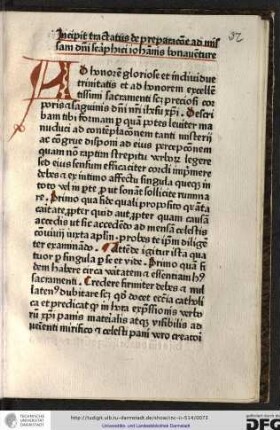 Incipit tractatus de preparacōe ad mis
sam dm̄ seraphici iohānis bonaventure
AD honorē gloriose et individue
trinitatis et ad honorem excellē
tissimi sacramenti scz preciosi cor
poris et sanguinis dn̄i nr̄i ihesu xp̄i descri
bam tibi formam p quā potes leviter ma
nuduci ad contēplacōnem tanti misterii
ac cōgrue disponi ad eius percepcōnem
quam nō raptim strepitu verboꝝ legere
sed eius sensum efficaciter cordi imprimere
debes et ex intimo affectu singula queqꝫ in
toto vel in parte put sonant sollicite rumina
re Primo qua fide quali proposito quāta
caritate propter quid aut propter quam causā
accedis ut sic accedēdo ad mensā celestis
convivii iuxta apl̄m probes teip̄m diligē
ter examinādo Attēde igitur ista qua
tuor p singula p se et vide Primo qua fi
dem habere circa veritatem et essentiam hꝰ
sacramenti Credere firmiter debes et nul
laten9 dubitare scz qd docet ecc̄ia catholi
ca et predicat qr in hora exp̄ssionis verbo
rū xp̄i panis materialis atqꝫ visibilis ad
uenienti vivifico et celesti pani vero creatori
32
http://tudigit.ulb.tu-darmstadt.de/show/inc-ii-514/0073
Universitäts- und Landesbibliothek Darmstadt
TECHNISCHE
UNIVERSITÄT
DARMSTADT
gefördert durch
DFG